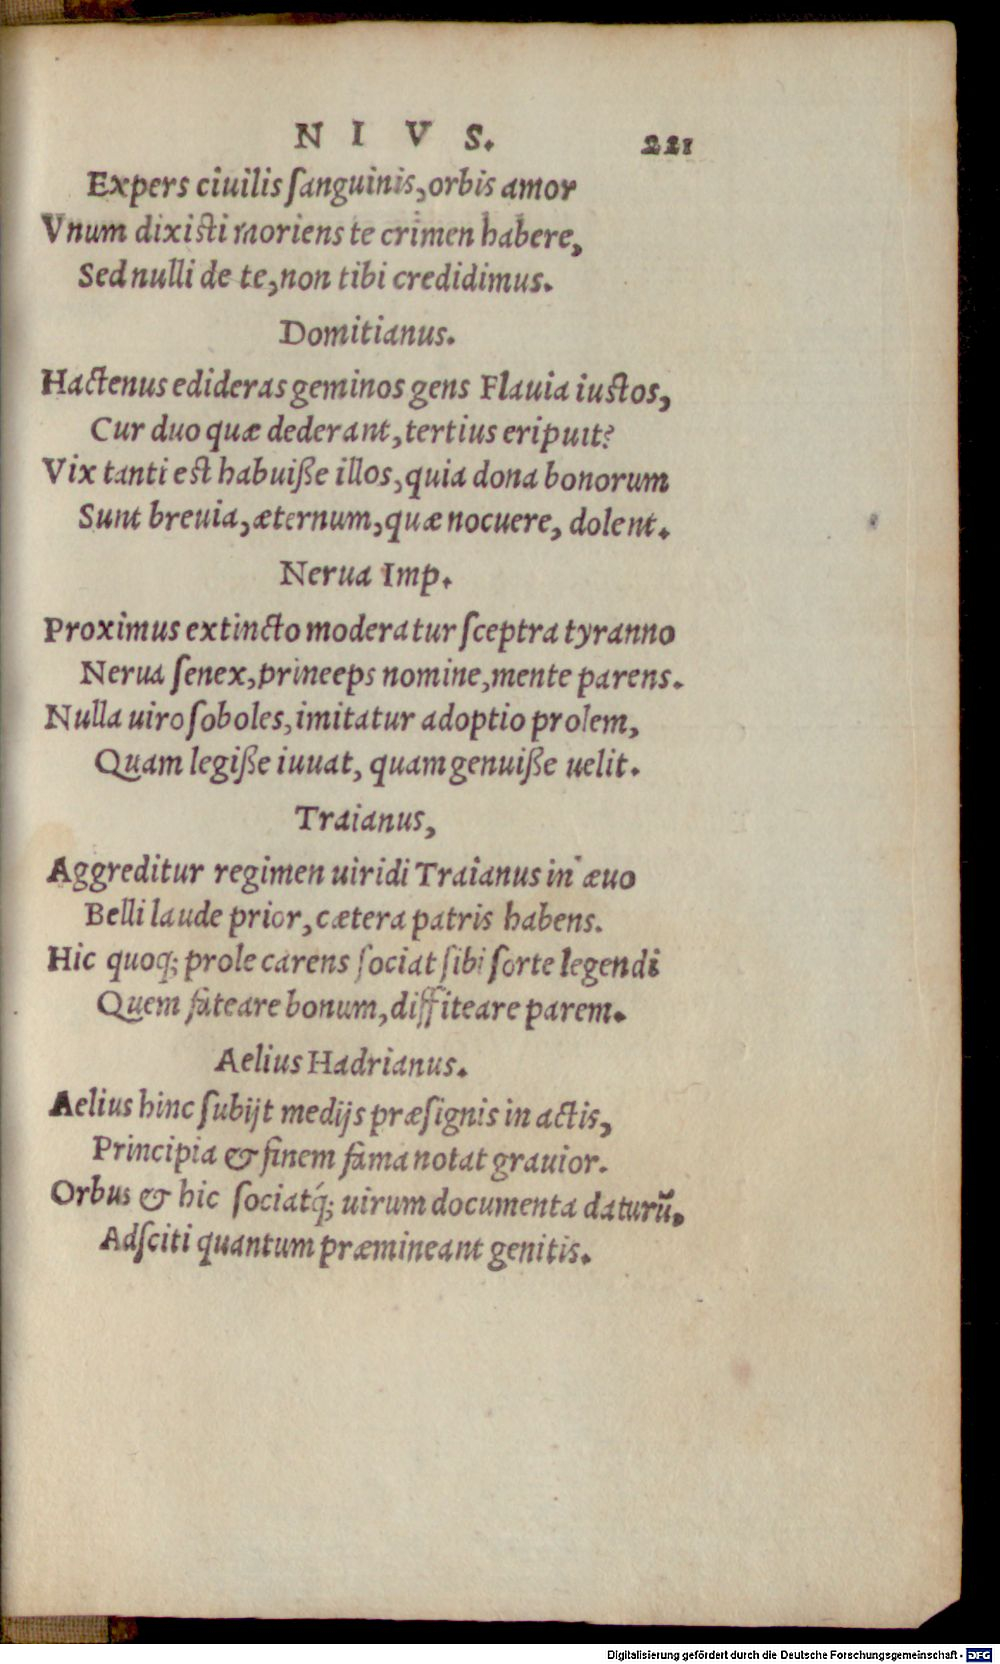 N I V S. 221
Expers ciuilis ſanguinis, orbis amor
Vnum dixisti moriens te crimen habere,
Sed nulli de te, non tibi credidimus.
Domitianus.
Hactenus edideras geminos gens Flauia iustos,
Cur duo quæ dederant, tertius eripuit?
Vix tanti est habuiße illos, quia dona bonorum
Sunt breuia, æternum, quæ nocuere, dolent.
Nerua Imp.
Proximus extincto moderatur ſceptra tyranno
Nerua ſenex, prineeps nomine, mente parens.
Nulla uiro ſoboles, imitatur adoptio prolem,
Quam legiße iuuat, quam genuiße uelit.
Traianus,
Aggreditur regimen uiridi Traianus in æuo
Belli laude prior, cætera patris habens.
Hic quoq; prole carens ſociat ſibi ſorte legendi
Quem fateare bonum, diffiteare parem.
Aelius Hadrianus.
Aelius hinc ſubijt medijs præſignis in actis,
Principia & finem fama notat grauior.
Orbus & hic ſociatq́; uirum documenta daturũ,
Adſciti quantum præmineant genitis.
Digitalisierung gefördert durch die Deutsche Forschungsgemeinschaft - DFG